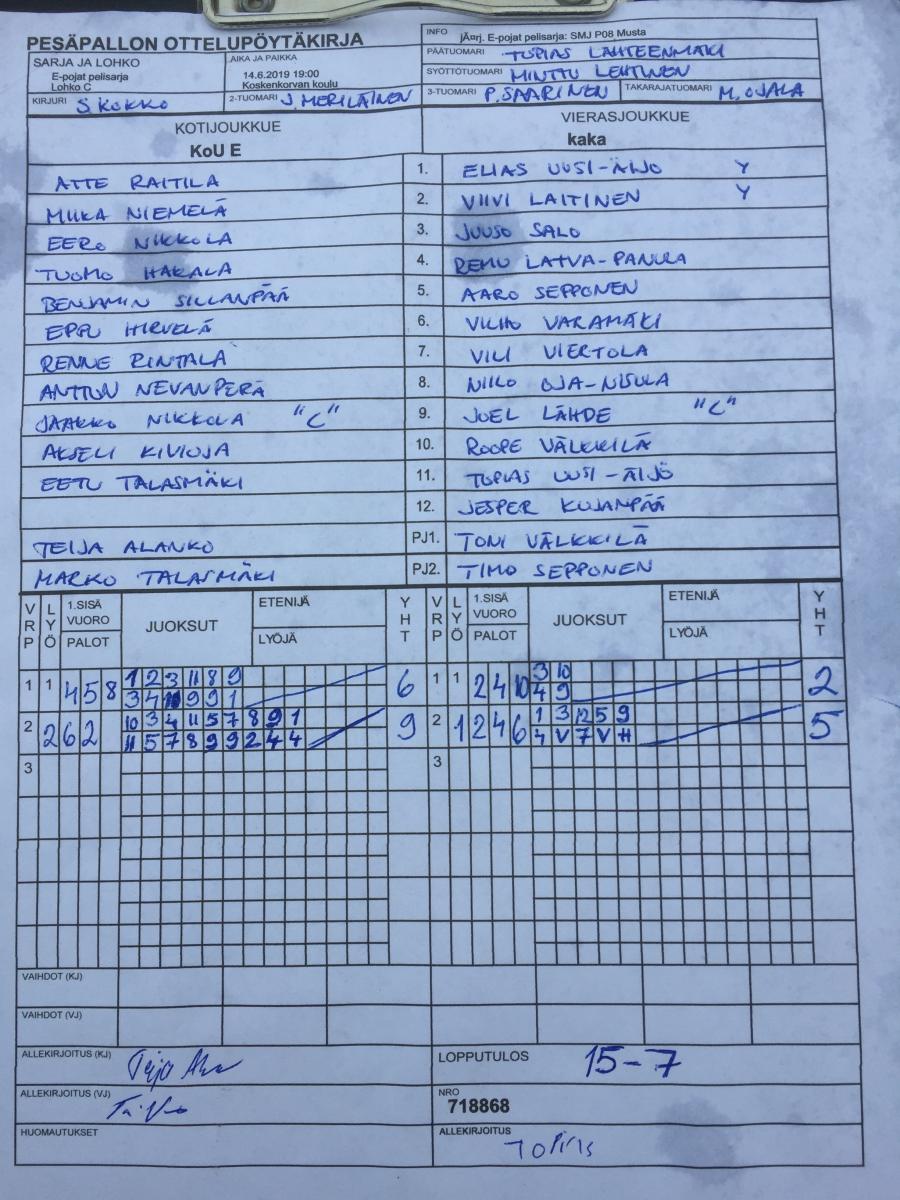 PESÄPALLON OTTELUPÖYTÄKIRJA
INFO jÃ¤rj. E-pojat pelisarja: SMJ P08 Musta
PÄÄTUOMARI TOPIAS LÄHTEENMÄKI
SARJA JA LOHKO E-pojat pelisarja Lohko C
AIKA JA PAIKKA 14.6.2019 19:00 Koskenkorvan koulu
SYÖTTÖTUOMARI MINTTU LEHTINEN
KIRJURI S. KOKKO 2-TUOMARI J. MERILÄINEN 3-TUOMARI P. SAARINEN TAKARAJATUOMARI M. OJALA
KOTIJOUKKUE VIERASJOUKKUE
KoU E kaka
ATTE RAITILA 1. ELIAS UUSI-ÄIJÖ Y
MIIKA NIEMELÄ 2. VIIVI LAITINEN Y
EERO NIKKOLA 3. JUUSO SALO
TUOMO HAKALA 4. REMU LATVA-PANULA
BENJAMIN SILLANPÄÄ 5. AARO SEPPONEN
EPPU HIRVELÄ 6. VILHO VARAMÄKI
RENNE RINTALA 7. VILI VIERTOLA
ANTTON NEVANPERÄ 8. NIILO OJA-NISULA
JAAKKO NIKKOLA "C" 9. JOEL LÄHDE "C"
AKSELI KIVIOJA 10. ROOPE VÄLKKILÄ
EETU TALASMÄKI 11. TOPIAS UUSI-ÄIJÖ
12. JESPER KUJANPÄÄ
TEIJA ALANKO PJ1. TONI VÄLKKILÄ
MARKO TALASMÄKI PJ2. TIMO SEPPONEN
VRP LYÖ 1.SISÄ VUORO PALOT JUOKSUT ETENIJÄ LYÖJÄ YHT VRP LYÖ 1.SISÄ VUORO PALOT JUOKSUT ETENIJÄ LYÖJÄ YHT
1 1 4 5 8 1 2 3 11 8 9 6 1 1 2 4 10 3 10 2
3 4 10 9 9 1 4 9
2 2 6 2 10 3 4 11 5 7 8 9 1 9 2 1 2 4 6 1 3 12 5 9 5
11 5 7 8 9 9 2 4 4 4 V 7 V H
3 3
VAIHDOT (KJ)
VAIHDOT (VJ)
ALLEKIRJOITUS (KJ) LOPPUTULOS 15-7
ALLEKIRJOITUS (VJ) NRO 718868
HUOMAUTUKSET ALLEKIRJOITUS